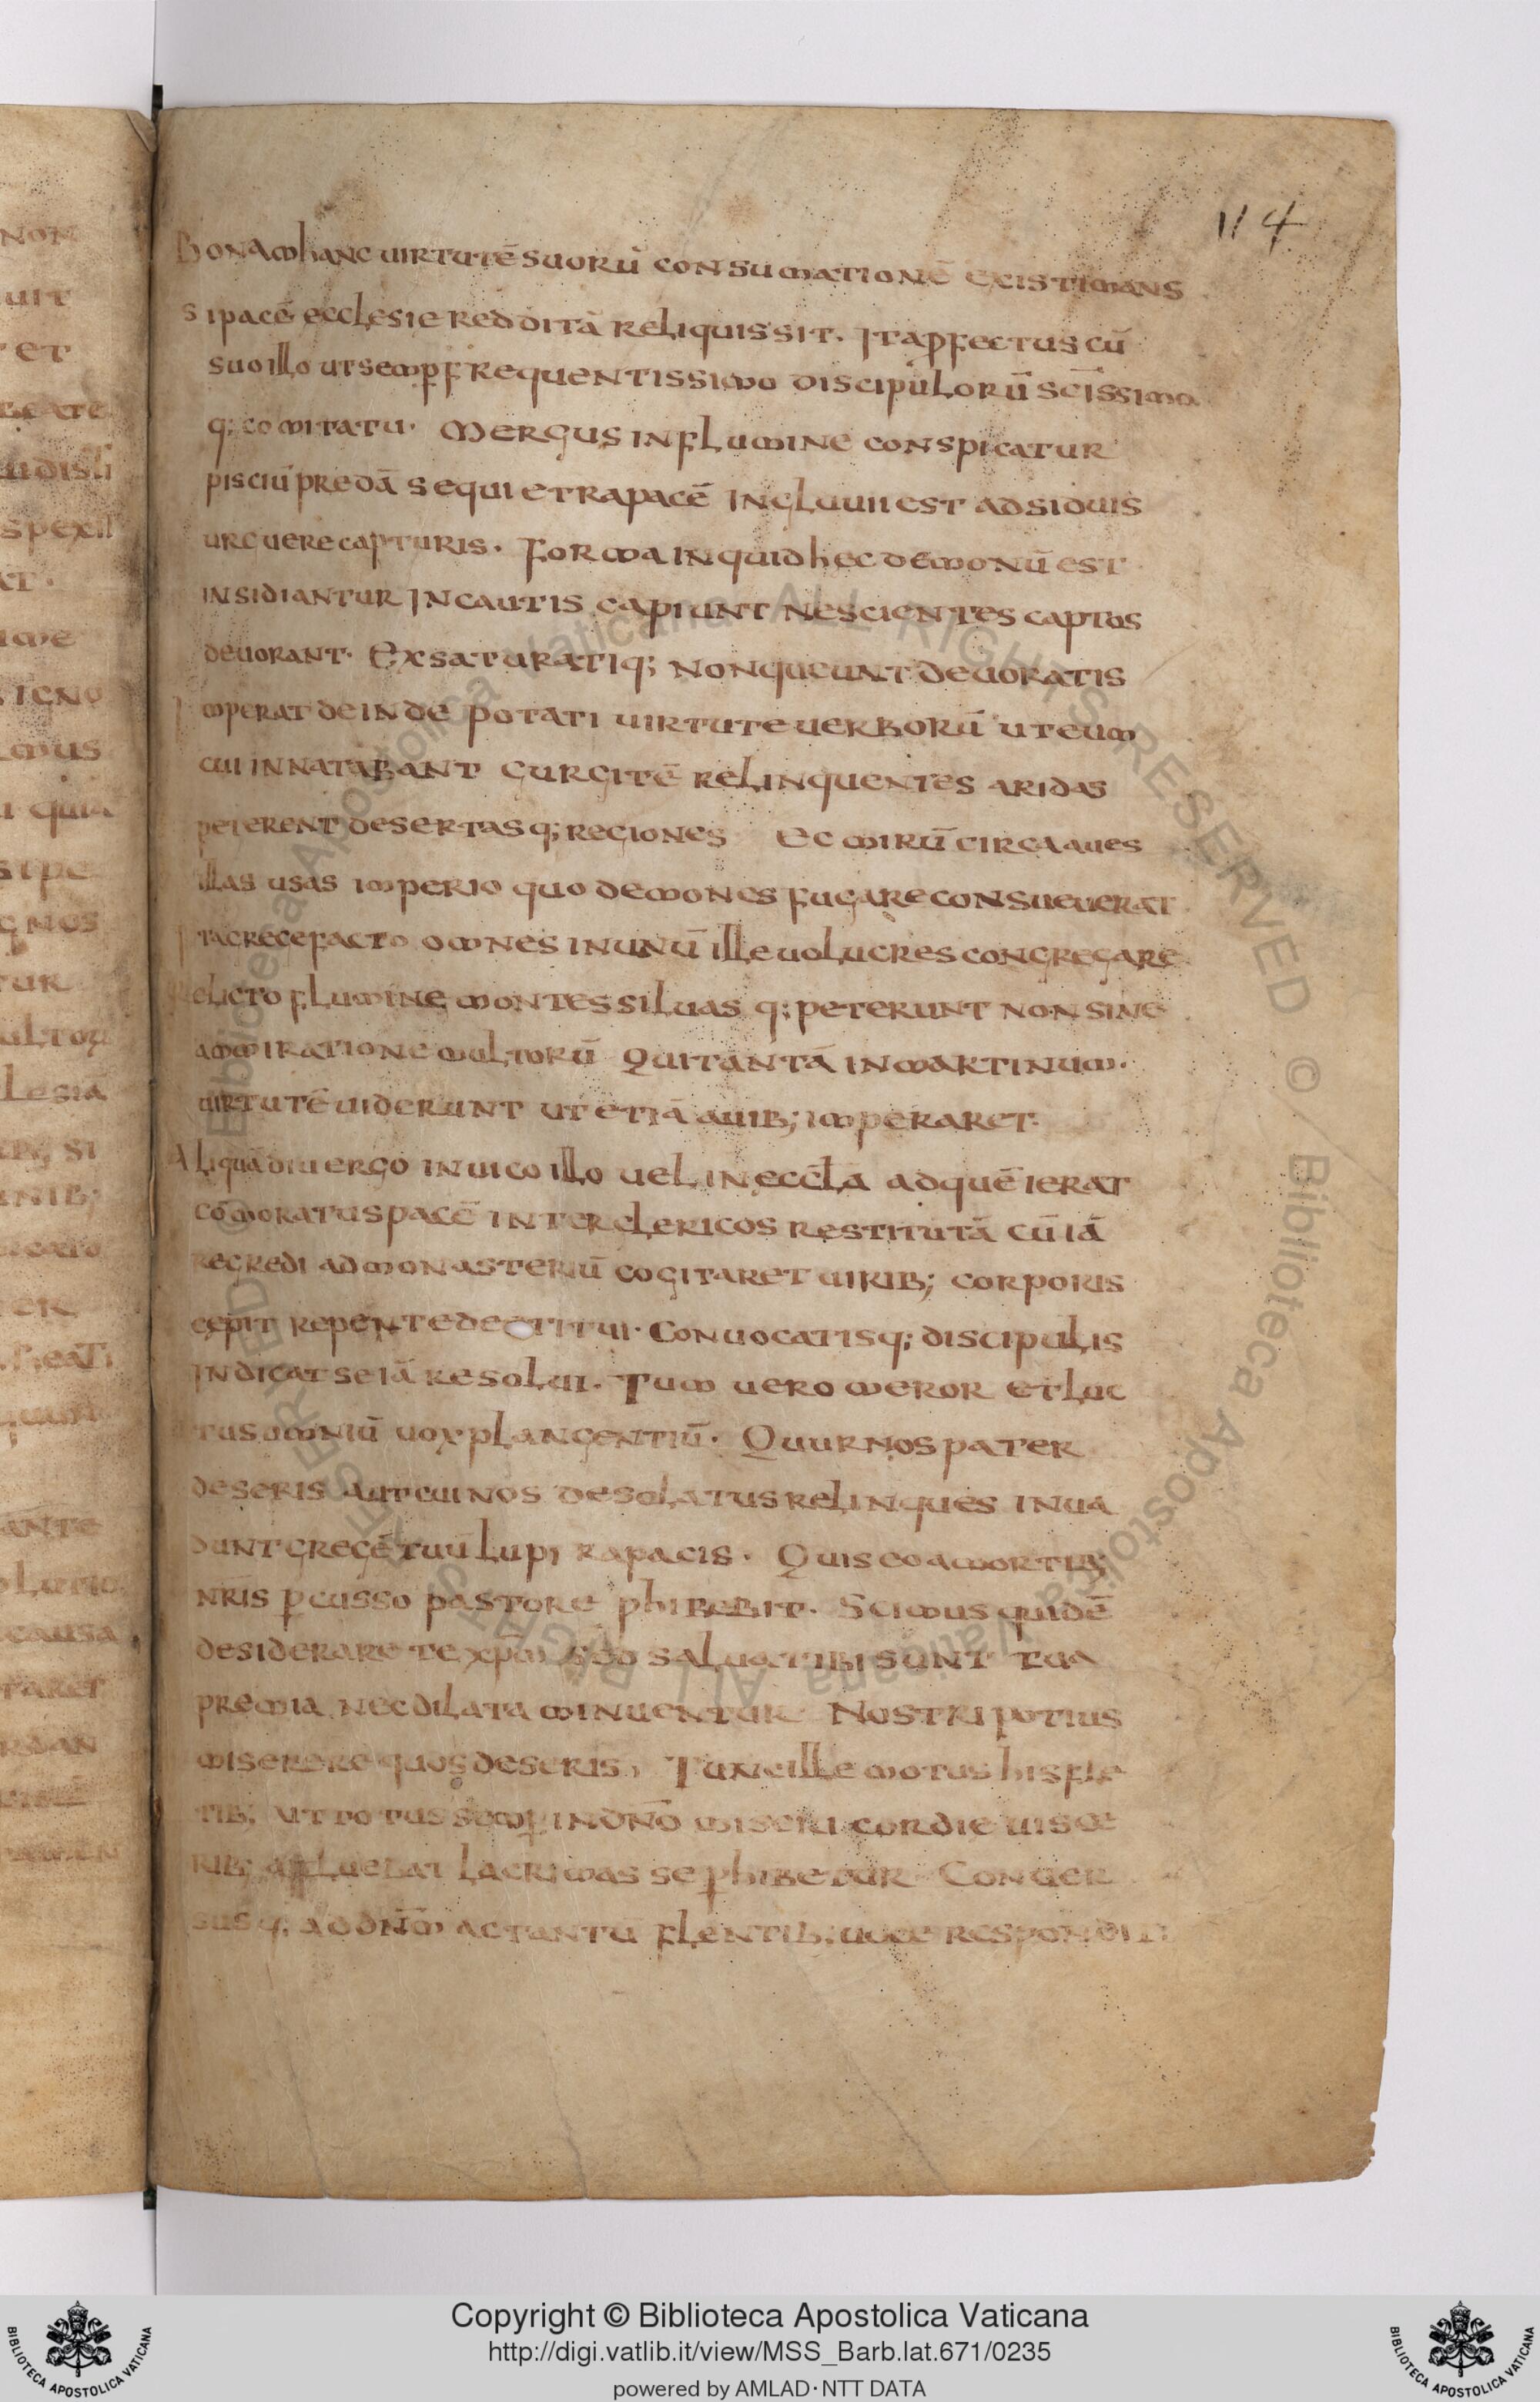 114
Bonam hanc uirtutē suorū consumationē existimans
si pacē ecclesie redditā reliquissit. Ita ꝓfectus cū
suo illo ut semꝑ frequentissimo discipulorū scīssimo
q; comitatu. Mergus in flumine conspicatur
pisciū predā sequi et rapacē ingluuii est adsiduis
urguere capturis. Forma inquid hec demonū est
insidiantur incautis capiunt nescientes captos
deuorant. Exsaturatiq; non queunt deuoratis
Imperat deinde potati uirtute uerborū ut eum
cui innatabant gurgitē relinquentes aridas
peterent desertasq; regiones Ec mirū circa aues
illas usas imperio quo demones fugare consueuerat
Ita grege facto omnes in unū ille uolucres congregare
Relicto flumine montes siluas q; peterunt non sine
ammiratione multorū qui tantā in martinum.
uirtutē uiderunt ut etiā auib; imperaret.
Aliquādiu ergo in uico illo uel in eccła ad quē ierat
cōmoratus pace inter clericos restitutā cū iā
regredi ad monasteriū cogitaret uirib; corporis
cepit repente destitui. Conuocatisq; discipulis
indicat se iā resolui. Tum uero meror et luc
tus omniū uox plangentiū. Quur nos pater
deseris aut cui nos desolatus relinques inua
dunt gregē tuū lupi rapacis. Quis eo a mortib;
nr̄is ꝑcusso pastore ꝓhibebit. Scimus quidē
desiderare te xp̄m sed salua tibi sunt tua
premia nec dilata minuentur Nostri potius
miserere quos deseris, Tunc ille motus his fle
tib; ut totus semꝑ in dn̄o misericordie uisce
rib; affluebat lacrimas se ꝓhibetur Conuer
susq; ad dn̄m actantū flentib; uoce respondit
Copyright © Biblioteca Apostolica Vaticana
http://digi.vatlib.it/view/MSS_Barb.lat.671/0235
powered by AMLAD·NTT DATA